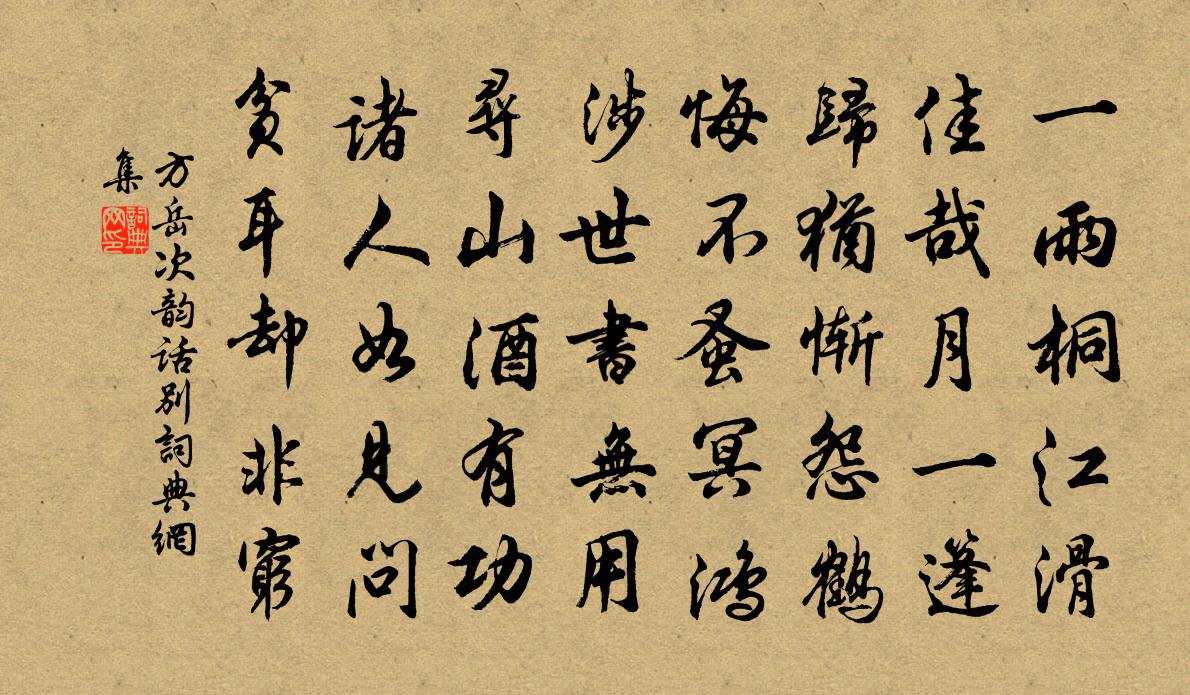 一雨桐江滑
佳哉月一篷
歸猶慚怨鶴
悔不蚤冥鴻
涉世書無用
尋山酒有功
諸人如見問
貧耳却非窮
方岳次韵話別詞典網
集
詞典
网印